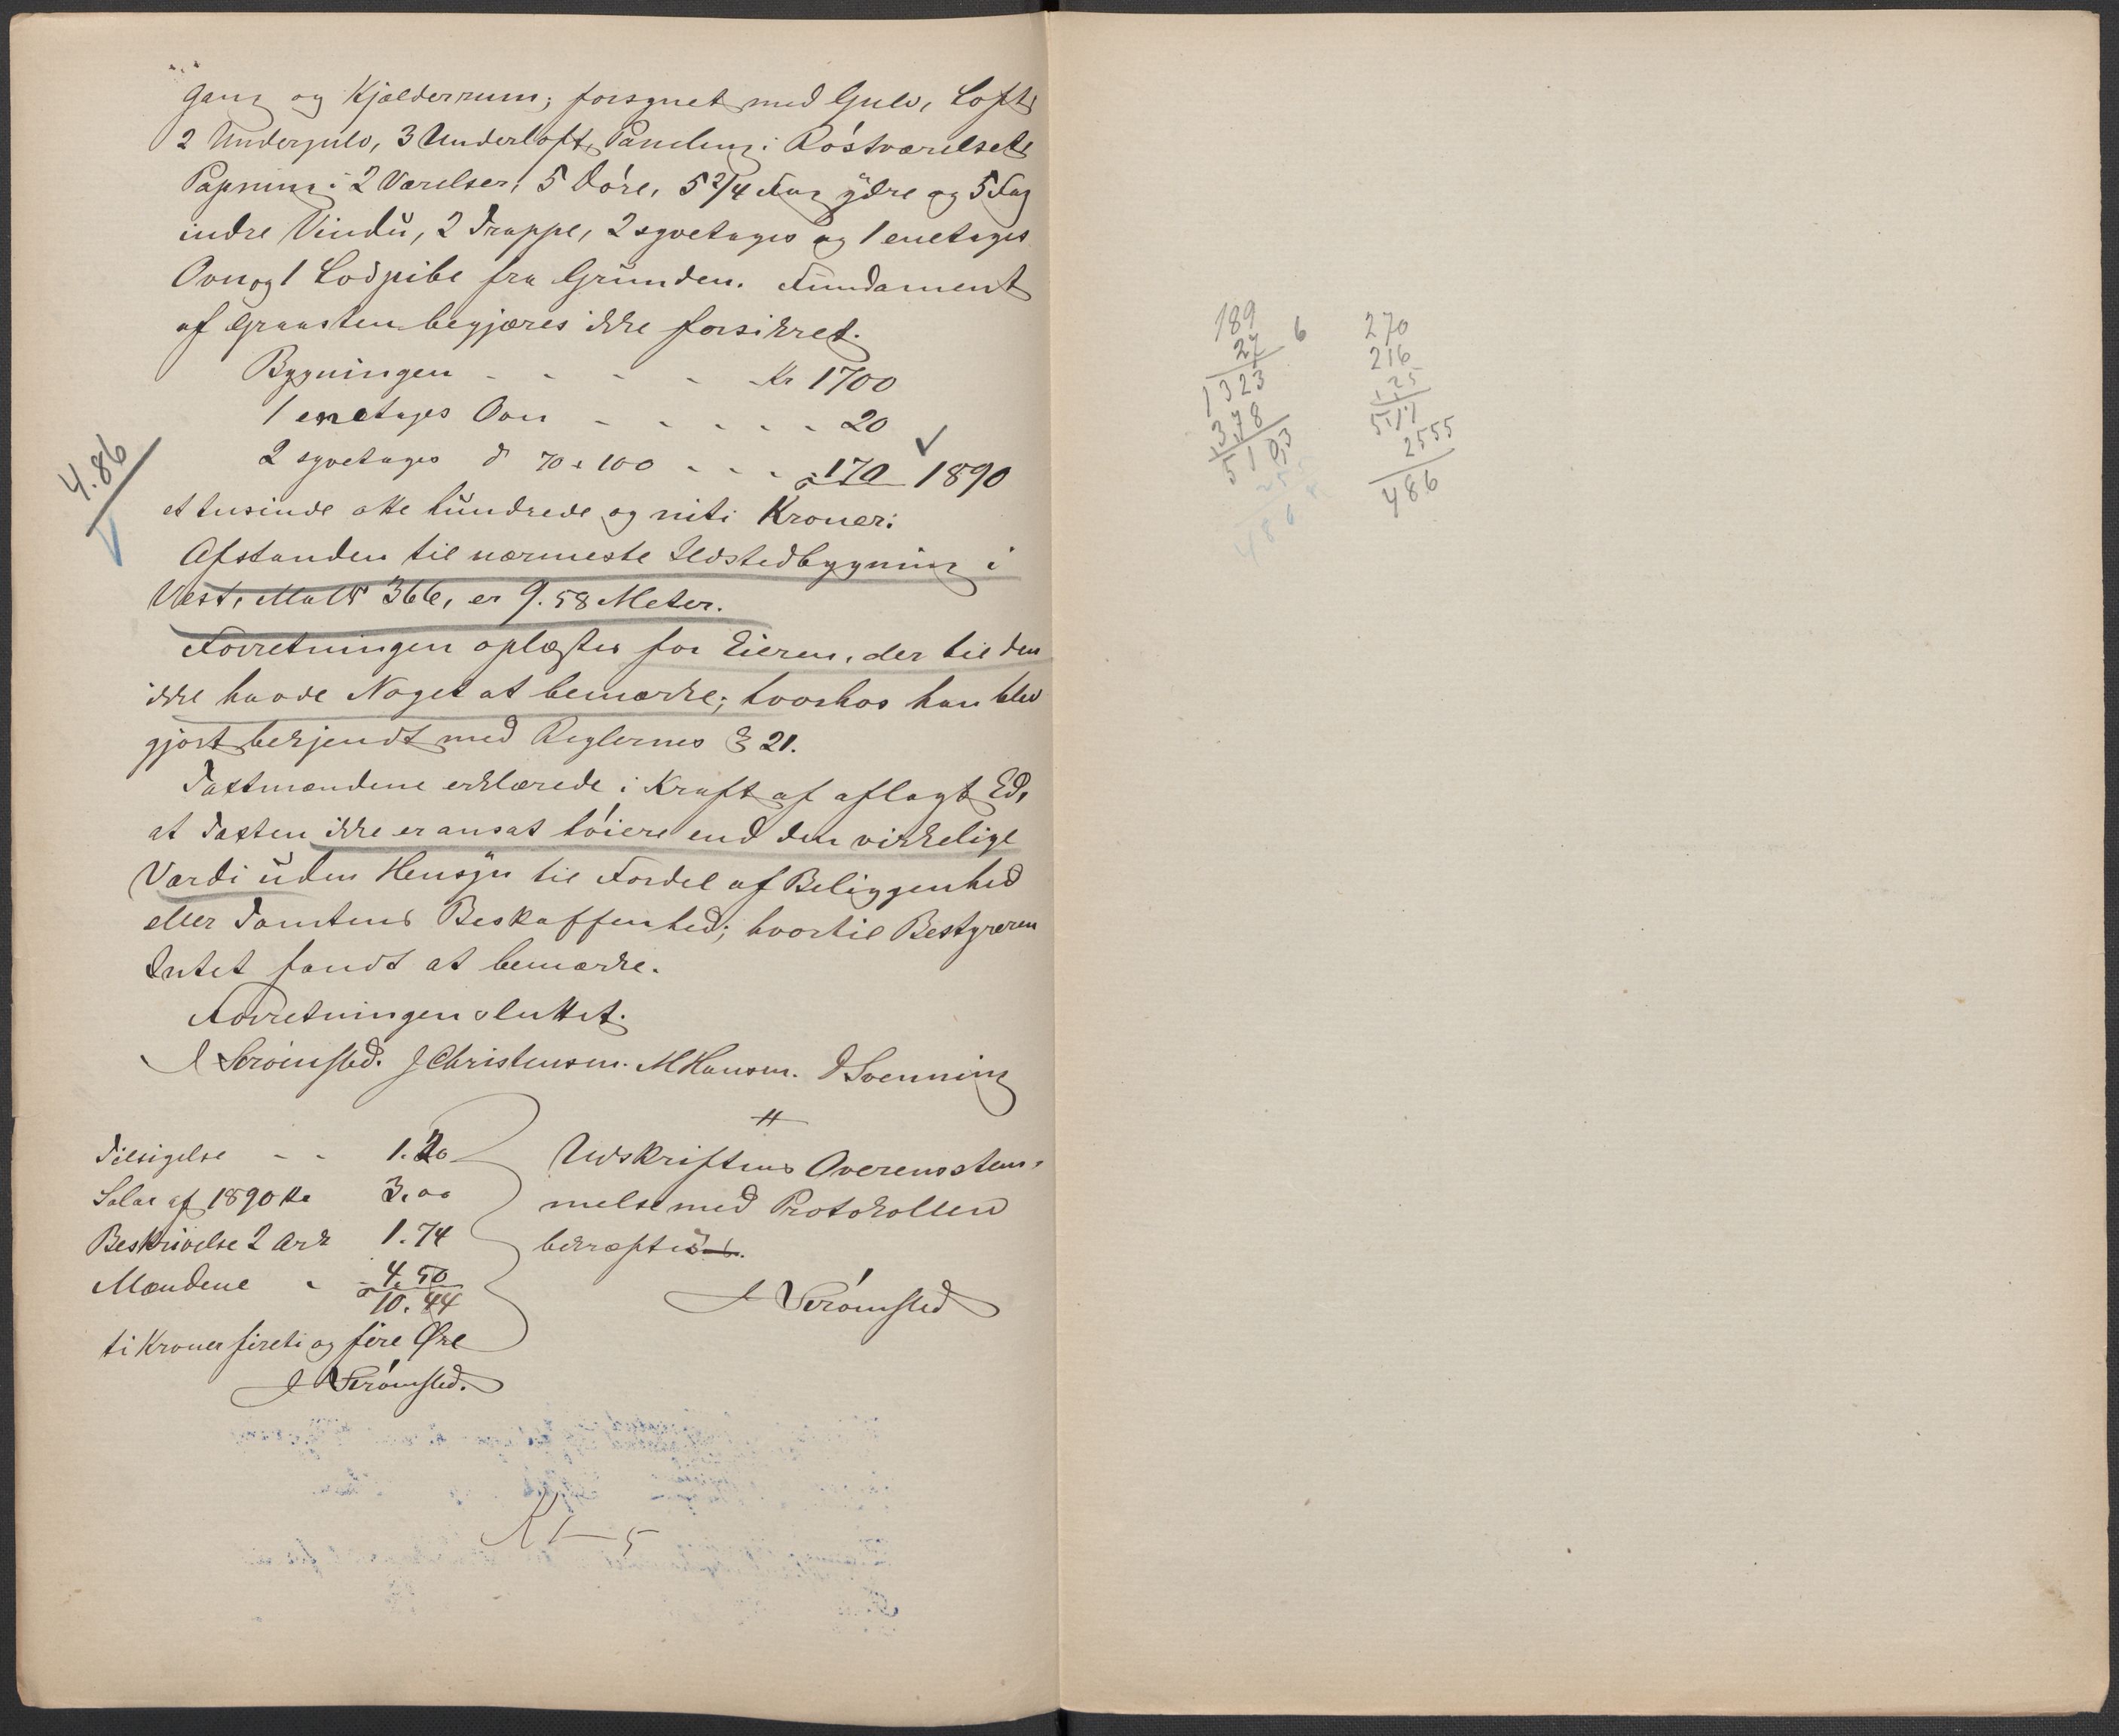 Gang og Kjælderrum; forsynet med Gulv, Loft,
2 Undergulv, 3 Underloft, Paneling i Røstværelset,
Papning i 2 Værelser, 5 Døre, 5 2/4 Fag ydre og 5 Fag
indre Vindu, 2 Trappe, 2 syvetages og 1 enetages
Ovn og 1 Lodpibe fra Grunden. Fundament
af Graasten begjæres ikke forsikret.
Bygningen - - - - Kr 1700
1 enetages Ovn - - - - - 20
2 syvetages d° 70 + 100 - - - 170 1890
et tusinde otte hundrede og niti Kroner:
4.86
Afstanden til nærmeste Ildstedbygning i
Vest, Mat N° 366, er 9.58 Meter.
Forretningen oplæstes for Eieren, der til den
ikke havde Noget at bemærke; hvorhos han blev
gjort bekjendt med Reglernes § 21.
Taxtmændene erklærede i Kraft af aflagt Ed,
at Taxten ikke er ansat høiere end den virkelige
Værdi uden Hensyn til Fordel af Beliggenhed
eller Tomtens Beskaffenhed; hvortil Bestyreren
Intet fandt at bemærke.
Forretningen sluttet.
J Strømsted. J Christensen. M Hansen. O Svenning
Tilsigelse - - 1.20
Salar af 1890 Kr 3.00
Beskrivelse 2 Ark 1.74
Mændene - 4.50
10.44
ti Kroner fireti og fire Øre
J Strømsted.
Udskriftens Overensstem-
melse med Protokollen
bekræftes.
J Strømsted
K 1 - 5
189
27 6
1323
378
5103
255
486
270
216
25
511
2555
486